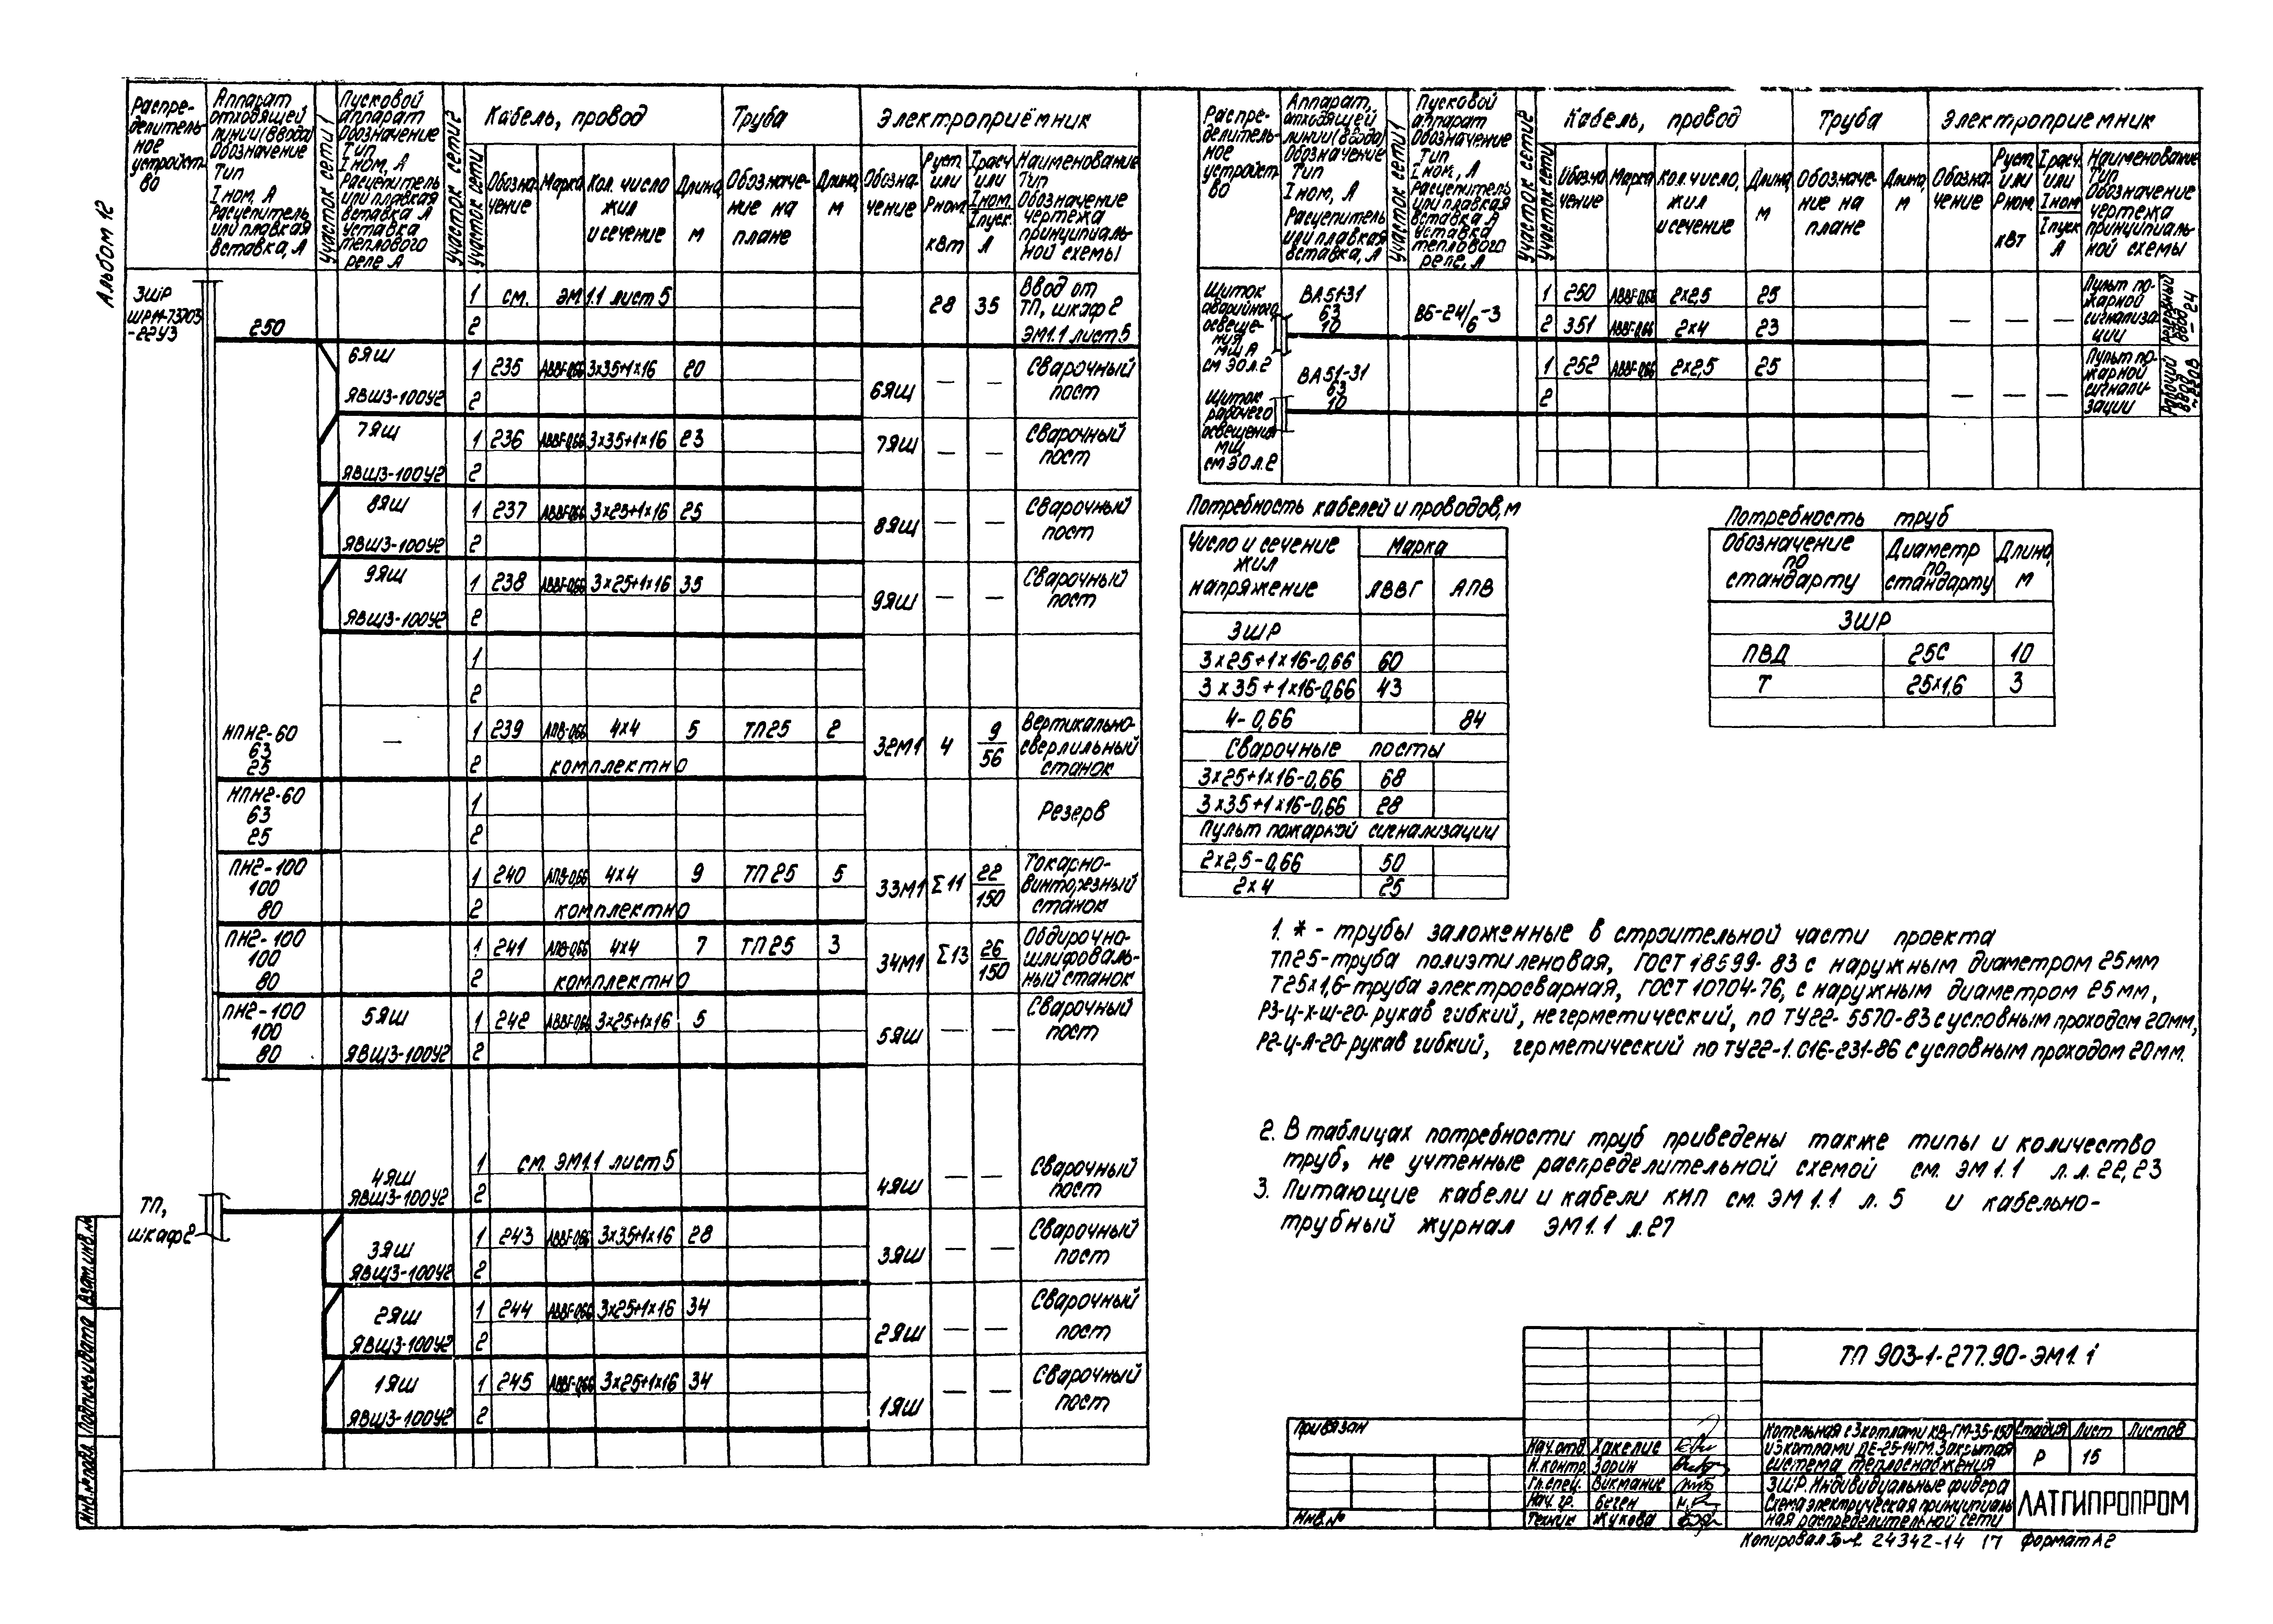 Альбом 12
Распре-
делитель-
ное
устройст-
во
Аппарат
отходящей
линии (ввода)
Обозначение
Тип
I ном, А
Расцепитель
или плавкая
вставка, А
Участок сети 1
Пусковой
аппарат
Обозначение
Тип
I ном, А
Расцепитель
или плавкая
вставка А
уставка
теплового
реле А
Участок сети 2
Участок сети
Кабель, провод
Обозна-
чение
Марка
Кол. число
жил
и сечение
Длина,
м
Труба
Обозначе-
ние на
плане
Длина,
м
Электроприёмник
Обозна-
чение
Руст.
или
Рном.
кВт
Iрасч
или
Iном.
Iпуск.
А
Наименование
Тип
Обозначение
чертежа
принципиаль-
ной схемы
3ШР
ШР11-73703
-22У3
250
1 см. ЭМ1.1 лист 5
2
28 35
Ввод от
ТП, шкаф 2
ЭМ1.1 лист 5
6ЯШ
ЯВШ3-100У2
1 235 АВВГ-0,66 3х35+1х16 20
2
6ЯШ — —
Сварочный
пост
7ЯШ
ЯВШ3-100У2
1 236 АВВГ-0,66 3х35+1х16 23
2
7ЯШ — —
Сварочный
пост
8ЯШ
ЯВШ3-100У2
1 237 АВВГ-0,66 3х25+1х16 25
2
8ЯШ — —
Сварочный
пост
9ЯШ
ЯВШ3-100У2
1 238 АВВГ-0,66 3х25+1х16 35
2
9ЯШ — —
Сварочный
пост
1
2
НПН2-60
63
25
—
1 239 АПВ-0,66 4х4 5 ТП25 2
2 комплектно
32М1 4 9/56
Вертикально-
сверлильный
станок
НПН2-60
63
25
1
2
Резерв
ПН2-100
100
80
1 240 АПВ-0,66 4х4 9 ТП25 5
2 комплектно
33М1 Σ11 22/150
Токарно-
винторезный
станок
ПН2-100
100
80
1 241 АПВ-0,66 4х4 7 ТП25 3
2 комплектно
34М1 Σ13 26/150
Обдирочно-
шлифоваль-
ный станок
ПН2-100
100
80
5ЯШ
ЯВШ3-100У2
1 242 АВВГ-0,66 3х25+1х16 5
2
5ЯШ — —
Сварочный
пост
ТП,
шкаф 2
4ЯШ
ЯВШ3-100У2
1 см. ЭМ1.1 лист 5
2
4ЯШ — —
Сварочный
пост
3ЯШ
ЯВШ3-100У2
1 243 АВВГ-0,66 3х35+1х16 28
2
3ЯШ — —
Сварочный
пост
2ЯШ
ЯВШ3-100У2
1 244 АВВГ-0,66 3х25+1х16 34
2
2ЯШ — —
Сварочный
пост
1ЯШ
ЯВШ3-100У2
1 245 АВВГ-0,66 3х25+1х16 34
2
1ЯШ — —
Сварочный
пост
Распре-
делитель-
ное
устройст-
во
Аппарат,
отходящей
линии (ввода)
Обозначение
Тип
I ном, А
Расцепитель
или плавкая
вставка, А
Участок сети 1
Пусковой
аппарат
Обозначение
Тип
I ном, А
Расцепитель
или плавкая
вставка А
уставка
теплового
реле, А
Участок сети 2
Участок сети
Кабель, провод
Обозна-
чение
Марка
Кол. число,
жил
и сечение
Длина,
м
Труба
Обозначе-
ние на
плане
Длина,
м
Электроприемник
Обозна-
чение
Руст.
или
Рном.
кВт
Iрасч.
или
Iном
Iпуск
А
Наименование
Тип
Обозначение
чертежа
принципиаль-
ной схемы
Щиток
аварийного
освеще-
ния
МЩА
см ЭО л.2
ВА51-31
63
10
ВБ-24/6-3
1 250 АВВГ-0,66 2х2,5 25
2 351 АВВГ-0,66 2х4 23
— — —
Пульт по-
жарной
сигнализа-
ции
Резервный
ввод
- 24
Щиток
рабочего
освещения
МЩ
см ЭО л.2
ВА51-31
63
10
1 252 АВВГ-0,66 2х2,5 25
2
— — —
Пульт по-
жарной
сигнали-
зации
Рабочий
ввод
~230В
Потребность кабелей и проводов, м
Число и сечение
жил
напряжение
Марка
АВВГ АПВ
3ШР
3х25+1х16-0,66 60
3х35+1х16-0,66 43
4-0,66 84
Сварочные посты
3х25+1х16-0,66 68
3х35+1х16-0,66 28
Пульт пожарной сигнализации
2х2,5-0,66 50
2х4 25
Потребность труб
Обозначение
по
стандарту
Диаметр
по
стандарту
Длина,
м
3ШР
ПВД 25С 10
Т 25х1,6 3
1. * - трубы заложенные в строительной части проекта
ТП25-труба полиэтиленовая, ГОСТ 18599-83 с наружным диаметром 25мм
Т25х1,6-труба электросварная, ГОСТ 10704-76, с наружным диаметром 25мм,
Р3-Ц-Х-Ш-20-рукав гибкий, негерметический, по ТУ22-5570-83 с условным проходом 20мм,
Р2-Ц-А-20-рукав гибкий, герметический по ТУ22-1.016-231-86 с условным проходом 20мм.
2. В таблицах потребности труб приведены также типы и количество
труб, не учтенные распределительной схемой см. ЭМ1.1 л.л. 22, 23
3. Питающие кабели и кабели КИП см. ЭМ1.1 л. 5 и кабельно-
трубный журнал ЭМ1.1 л. 27
Привязан
Инв.№
ТП 903-1-277.90-ЭМ1.1
Нач.отд. Хакелис
Н.контр. Зорин
Гл.спец. Викмание
Нач. гр. Беген
Техник Жукова
Котельная с 3 котлами КВ-ГМ-35-150
и 3 котлами ДЕ-25-14ГМ. Закрытая
система теплоснабжения
Стадия Лист Листов
Р 15
3ШР. Индивидуальные фидера
Схема электрическая принципиаль
ная распределительной сети
ЛАТГИПРОПРОМ
Копировал 24342-14 17 Формат А2
Взам.инв.№
Подпись и дата
Инв.№ подл.